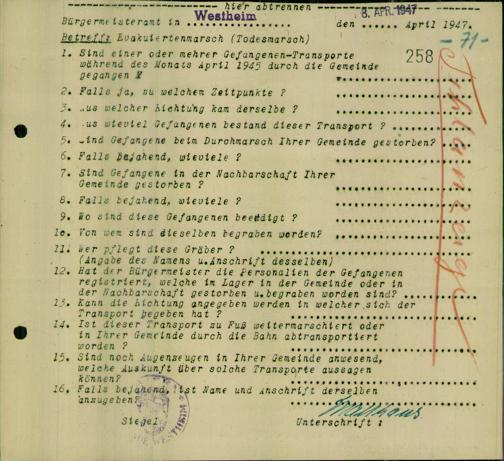 hier abtrennen
Bürgermeisteramt in Westheim den 8. APR. 1947 April 1947.
Betreff: Evakuiertenmarsch (Todesmarsch)
- 71 -
258
Fehlanzeige
1. Sind einer oder mehrer Gefangenen-Transporte
während des Monats April 1945 durch die Gemeinde
gegangen ?
2. Falls ja, zu welchem Zeitpunkte ?
3. Aus welcher Richtung kam derselbe ?
4. Aus wieviel Gefangenen bestand dieser Transport ?
5. Sind Gefangene beim Durchmarsch Ihrer Gemeinde gestorben?
6. Falls bejahend, wieviele ?
7. Sind Gefangene in der Nachbarschaft Ihrer
Gemeinde gestorben ?
8. Falls bejahend, wieviele ?
9. Wo sind diese Gefangenen beerdigt ?
1o. Von wem sind dieselben begraben worden?
11. Wer pflegt diese Gräber ?
(Angabe des Namens u.Anschrift desselben)
12. Hat der Bürgermeister die Personalien der Gefangenen
registriert, welche im Lager in der Gemeinde oder in
der Nachbarschaft gestorben u.begraben worden sind?
13. Kann die Richtung angegeben werden in welcher sich der
Transport begeben hat ?
14. Ist dieser Transport zu Fuß weitermarschiert oder
in Ihrer Gemeinde durch die Bahn abtransportiert
worden ?
15. Sind noch Augenzeugen in Ihrer Gemeinde anwesend,
welche Auskunft über solche Transporte aussagen
können?
16. Falls bejahend, ist Name und Anschrift derselben
anzugeben?
Siegel
WESTHEIM
Unterschrift :